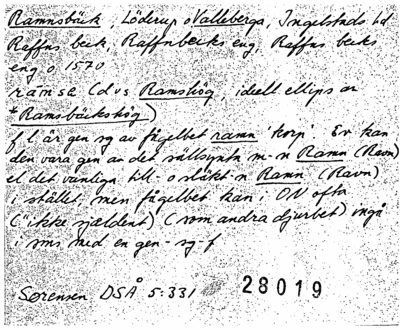 Ramnsbäck, Löderup o Valleberga, Ingelstads hd
Raffns beck, Raffnbecks eng, Raffns becks
eng o 1570
ramsa (dvs Ramshög, ideell ellips av
*Ramsbäckshög)
f l är gen sg av fågelbet ramn 'korp'. Ev kan
den vara gen av det sällsynta m-n Ramn (Ravn)
el det vanliga till- o släkt-n Ramn (Ravn)
i stället, men fågelbet kan i ON ofta
("ikke sjældent) (som andra djurbet) ingå
i sms med en gen-sg-f
Sørensen DSÅ 5:331 28019